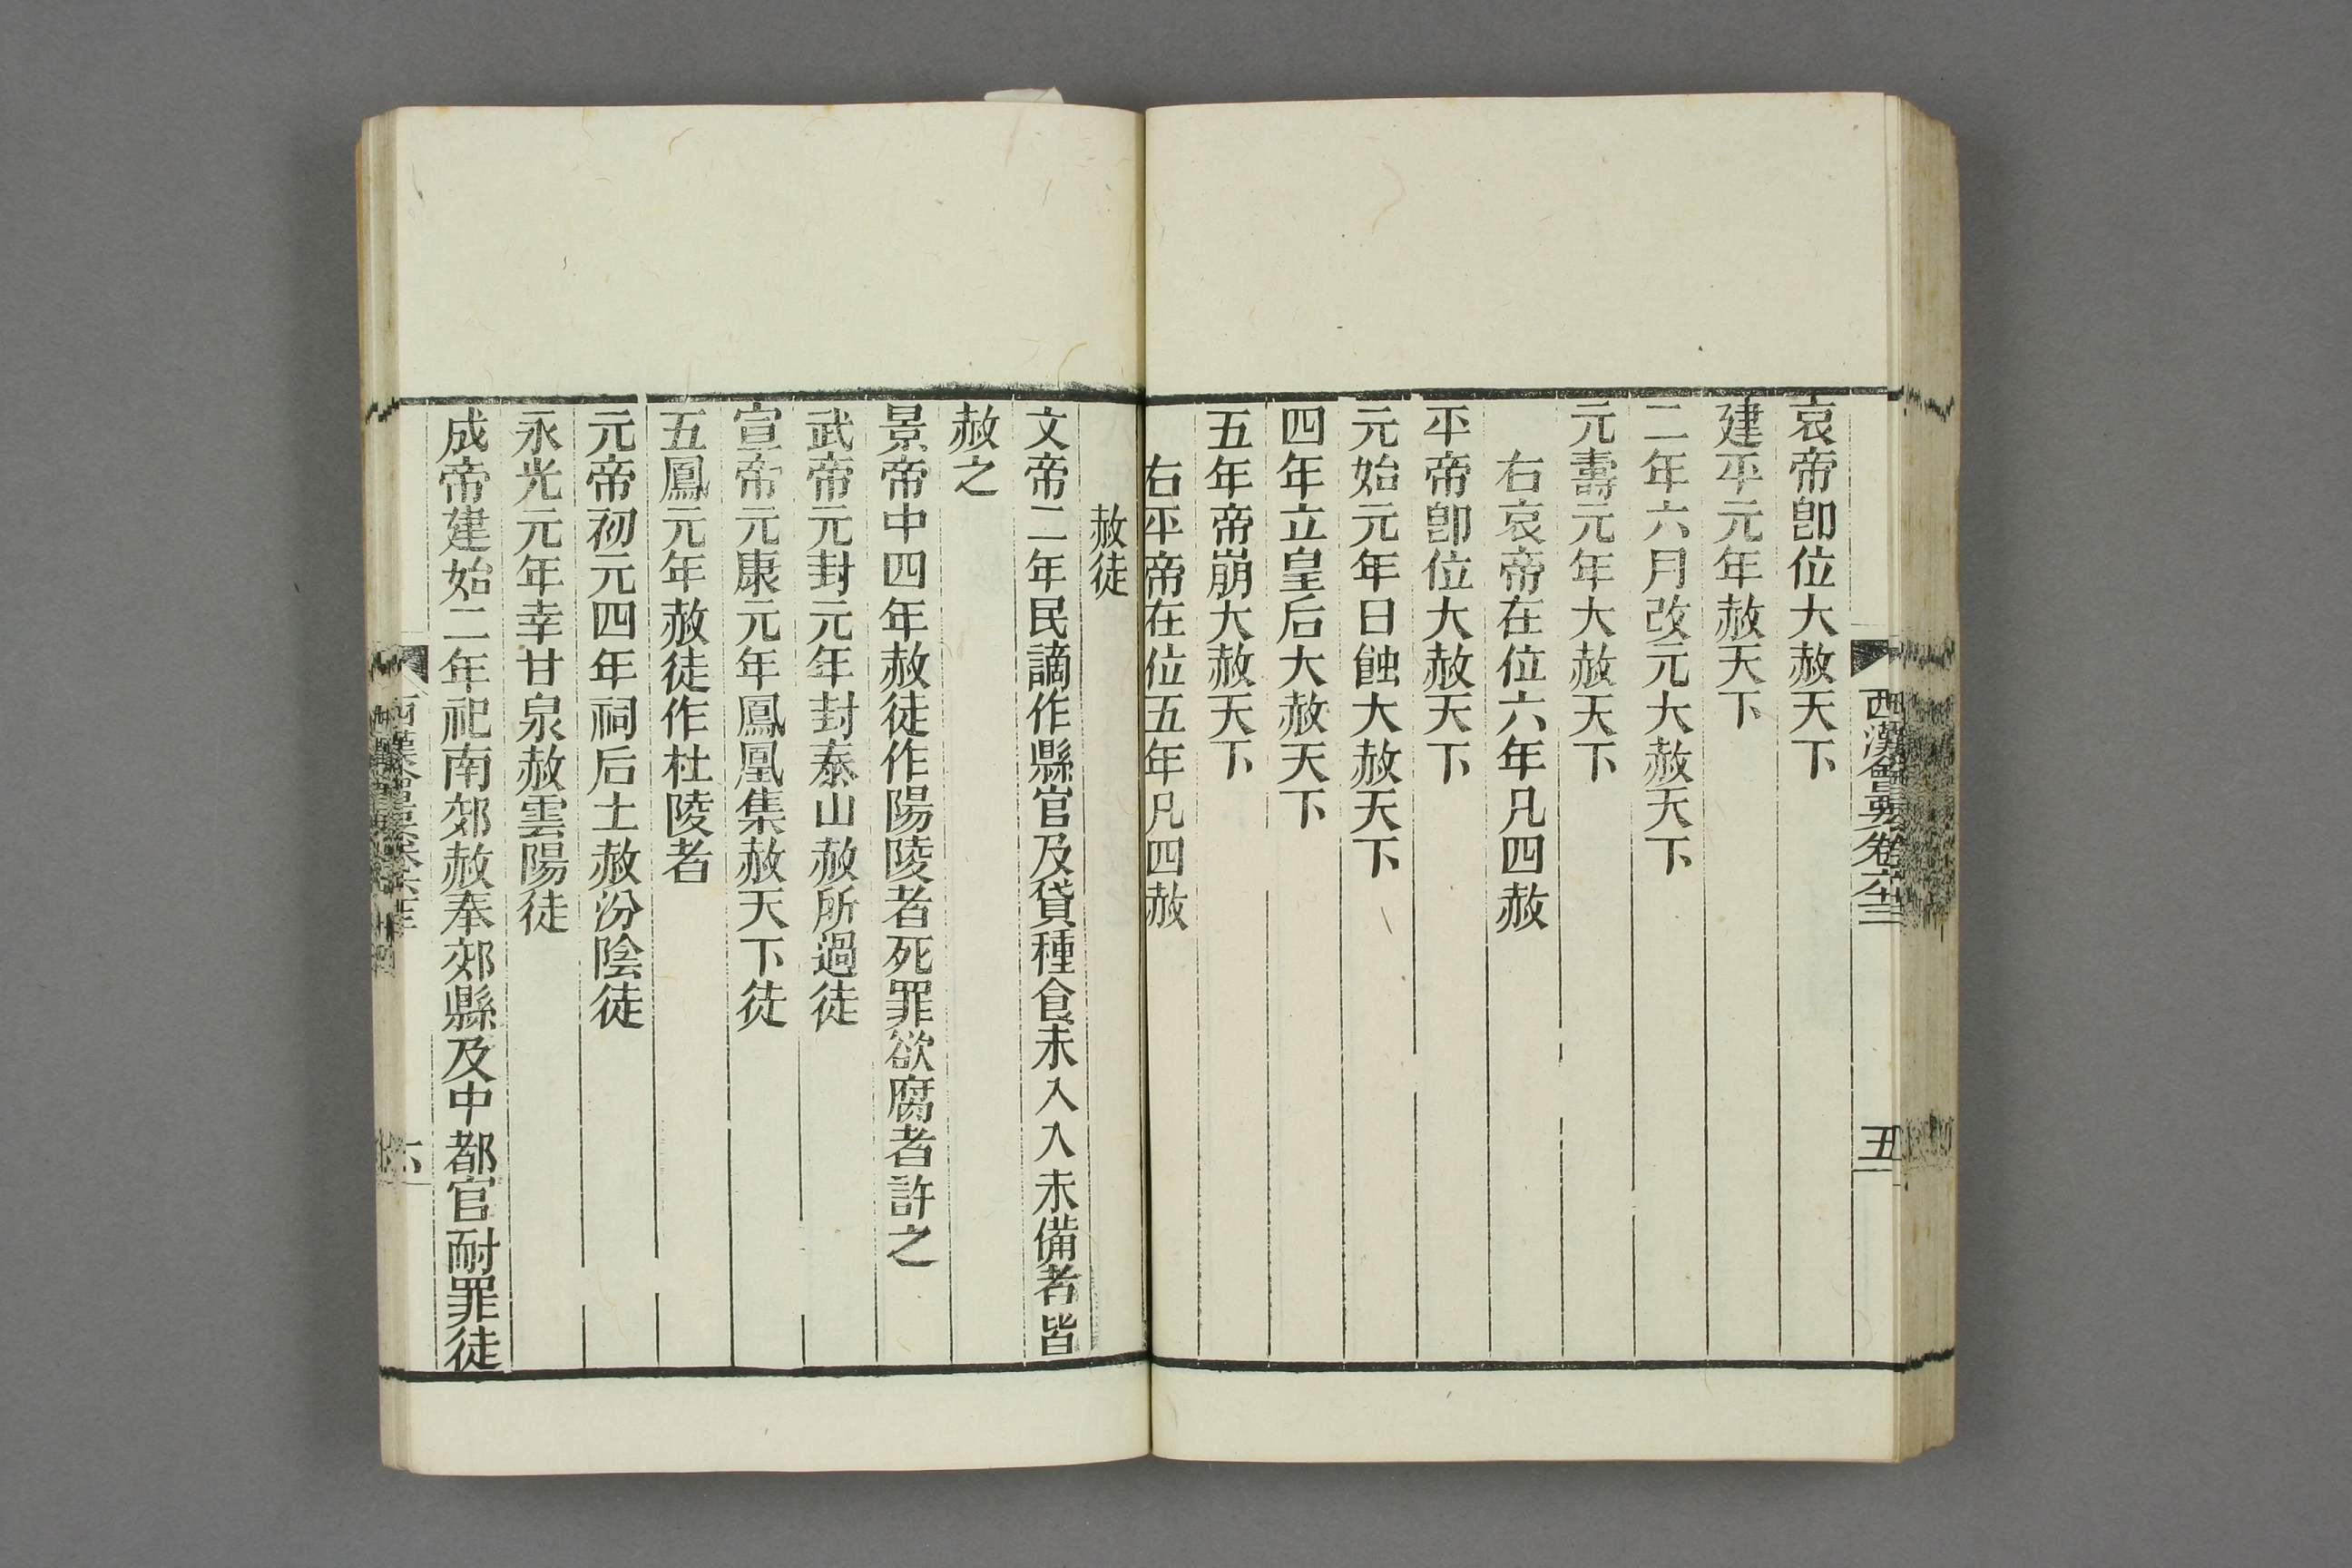 西漢會要卷六十三
五
哀帝卽位大赦天下
建平元年赦天下
二年六月改元大赦天下
元壽元年大赦天下
右哀帝在位六年凡四赦
平帝卽位大赦天下
元始元年日蝕大赦天下
四年立皇后大赦天下
五年帝崩大赦天下
右平帝在位五年凡四赦
赦徒
文帝二年民謫作縣官及貸種食未入入未備者皆
赦之
景帝中四年赦徒作陽陵者死罪欲腐者許之
武帝元封元年封泰山赦所過徒
宣帝元康元年鳳凰集赦天下徒
五鳳元年赦徒作杜陵者
元帝初元四年祠后土赦汾陰徒
永光元年幸甘泉赦雲陽徒
成帝建始二年祀南郊赦奉郊縣及中都官耐罪徒
六